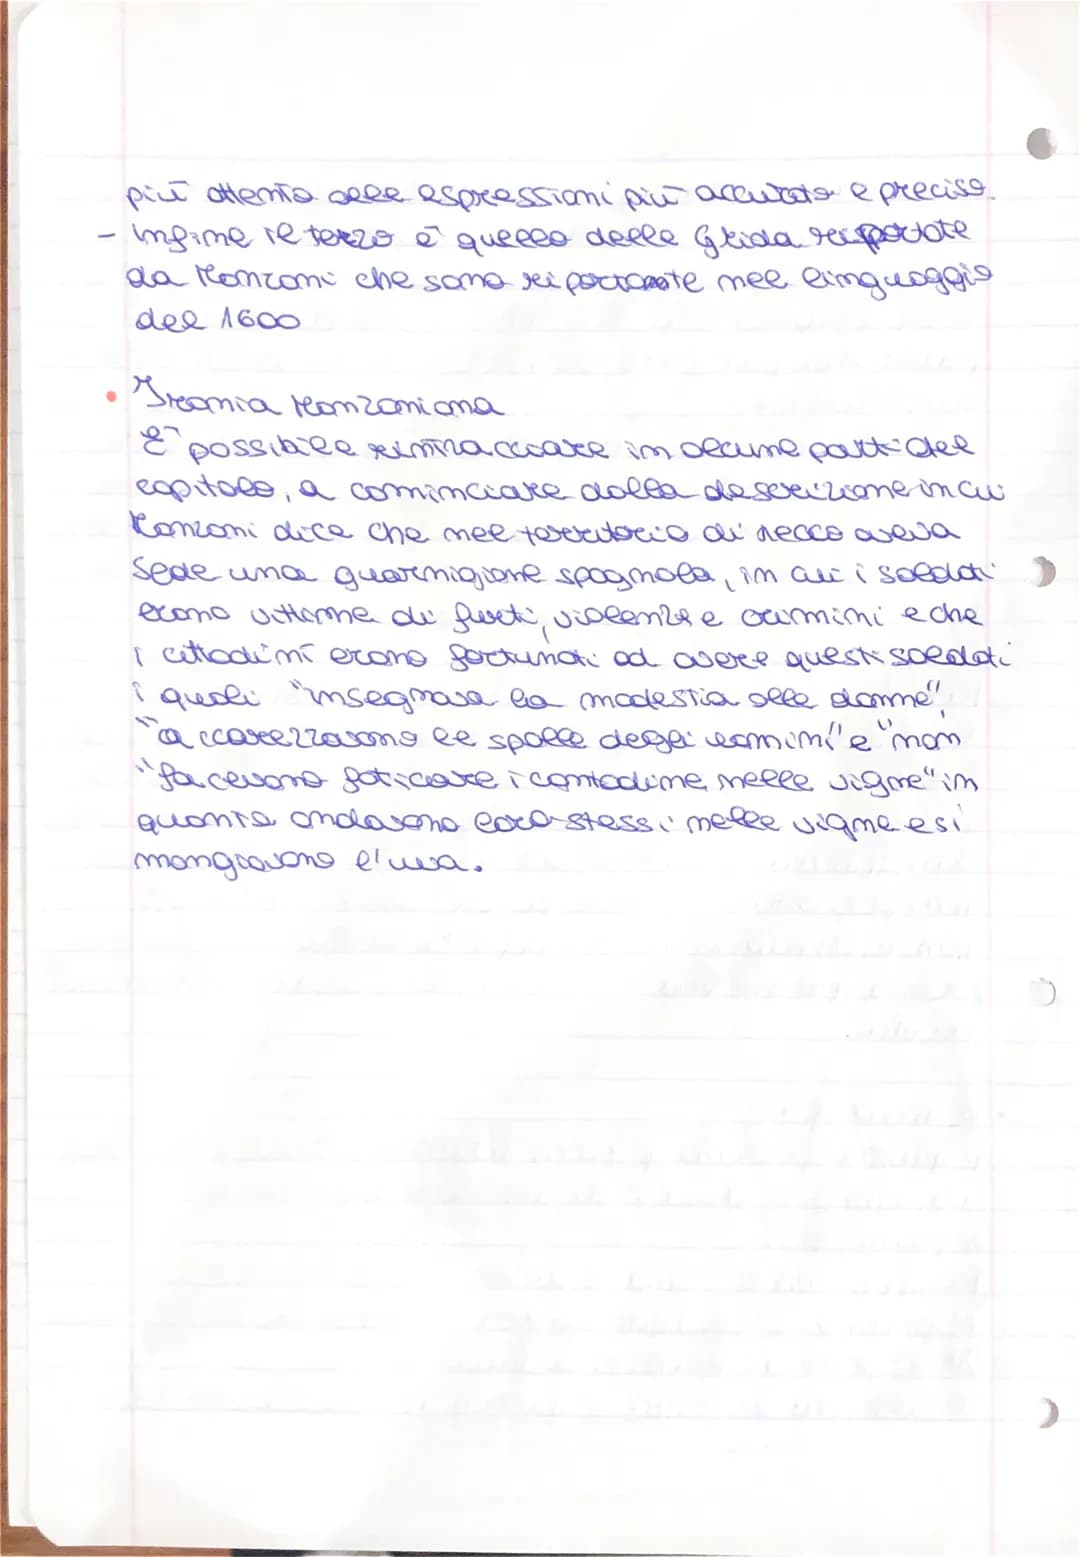 più attento alle espressioni più accurate e precise.
- Infine il terzo è quello delle Grida riportate
da Manzoni che sono riportante nel linguaggio
del 1600
• Ironia Manzoniana
E' possibile rintracciare in alcune parti del
capitolo, a cominciare dalla descrizione in cui
Manzoni dice che nel territorio di Lecco aveva
sede una guarnigione spagnola, in cui i soldati
erano vittime di furti, violenze e crimini e che
i cittadini erano fortunati ad avere questi soldati
i quali "insegnava la modestia alle donne",
"accarezzavano le spalle degli uomini" e "non
"facevano faticare i contadine nelle vigne" in
quanto andavano loro stessi nelle vigne e si
mangiavano l'uva.